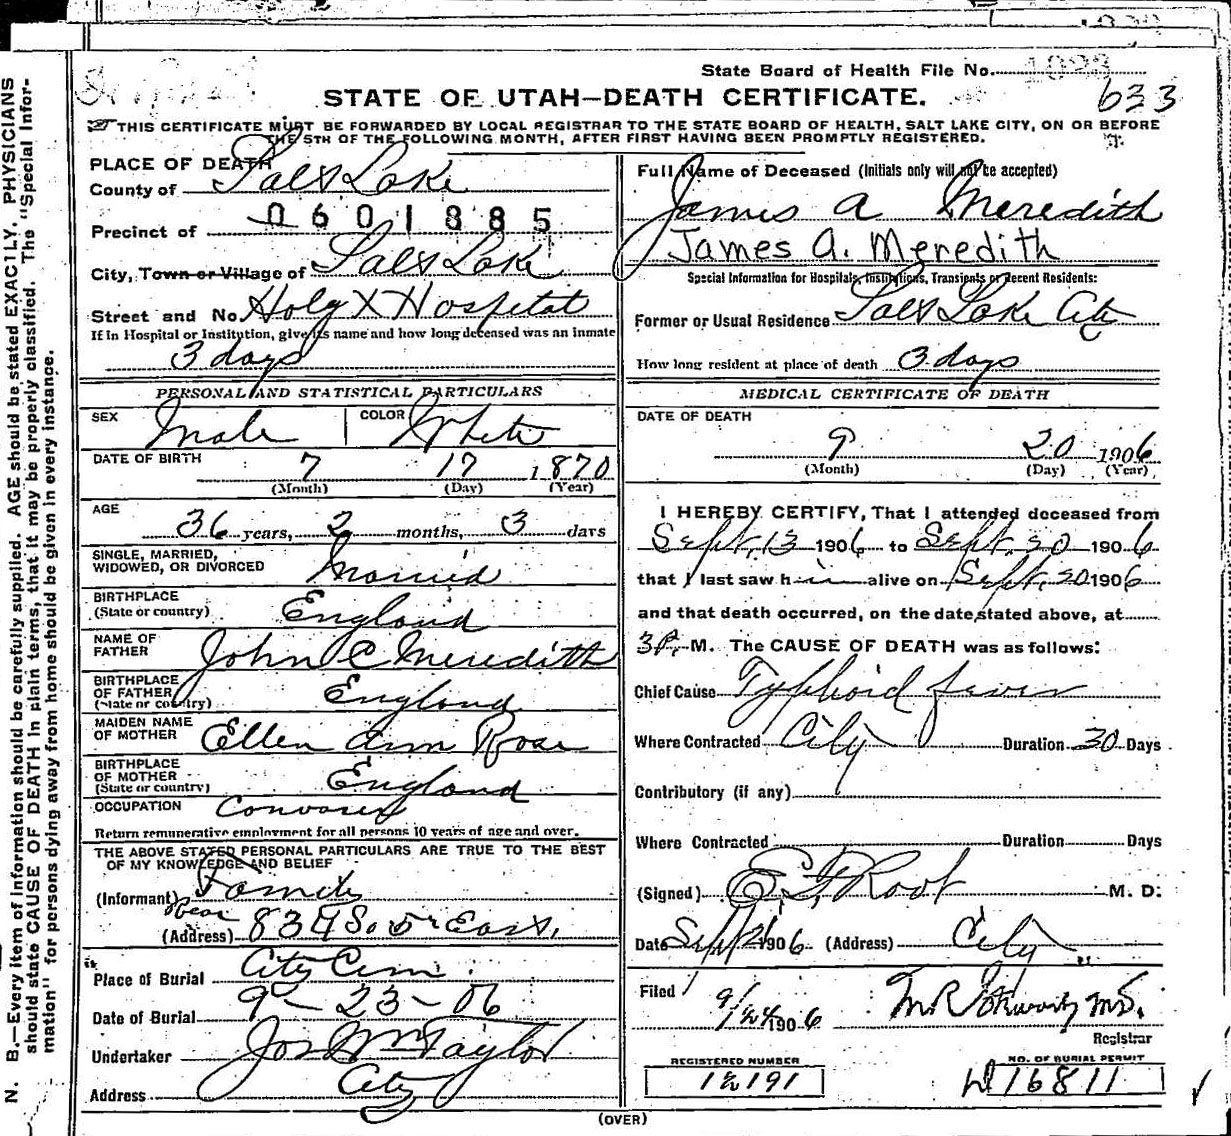 State Board of Health File No. 1023
633
STATE OF UTAH—DEATH CERTIFICATE.
THIS CERTIFICATE MUST BE FORWARDED BY LOCAL REGISTRAR TO THE STATE BOARD OF HEALTH, SALT LAKE CITY, ON OR BEFORE
THE 5TH OF THE FOLLOWING MONTH, AFTER FIRST HAVING BEEN PROMPTLY REGISTERED.
PLACE OF DEATH
County of Salt Lake
0601885
Precinct of
City, Town or Village of Salt Lake
Street and No. Holy X Hospital
If in Hospital or Institution, give its name and how long deceased was an inmate
3 days
PERSONAL AND STATISTICAL PARTICULARS
SEX Male COLOR White
DATE OF BIRTH 7 17 1870
(Month) (Day) (Year)
AGE
36 years, 2 months, 3 days
SINGLE, MARRIED,
WIDOWED, OR DIVORCED Married
BIRTHPLACE
(State or country) England
NAME OF
FATHER John C Meredith
BIRTHPLACE
OF FATHER England
(State or country)
MAIDEN NAME
OF MOTHER Ellen Ann Rose
BIRTHPLACE
OF MOTHER England
(State or country)
OCCUPATION Canvaser
Return remunerative employment for all persons 10 years of age and over.
THE ABOVE STATED PERSONAL PARTICULARS ARE TRUE TO THE BEST
OF MY KNOWLEDGE AND BELIEF
(Informant) Family
Rear
(Address) 834 So. 5th East.
Place of Burial City Cem.
Date of Burial 9-23-06
Undertaker Jos Wm Taylor
Address City
Full Name of Deceased (Initials only will not be accepted)
James A Meredith
James A. Meredith
Special Information for Hospitals, Institutions, Transients or Recent Residents:
Former or Usual Residence Salt Lake City
How long resident at place of death 3 days
MEDICAL CERTIFICATE OF DEATH
DATE OF DEATH
9 20 1906
(Month) (Day) (Year)
I HEREBY CERTIFY, That I attended deceased from
Sept. 13 1906 to Sept. 20 1906
that I last saw him alive on Sept. 20 1906
and that death occurred, on the date stated above, at
3 P. M. The CAUSE OF DEATH was as follows:
Chief Cause Typhoid fever
Where Contracted City Duration 30 Days
Contributory (if any)
Where Contracted Duration Days
(Signed) E. F. Root M. D.
Date Sept 21 1906 (Address) City
Filed 9/24 1906 M.D.
Registrar
REGISTERED NUMBER
12191
NO. OF BURIAL PERMIT
D16811
(OVER)
N. B.—Every item of information should be carefully supplied. AGE should be stated EXACTLY. PHYSICIANS
should state CAUSE OF DEATH in plain terms, that it may be properly classified. The "Special Infor-
mation" for persons dying away from home should be given in every instance.